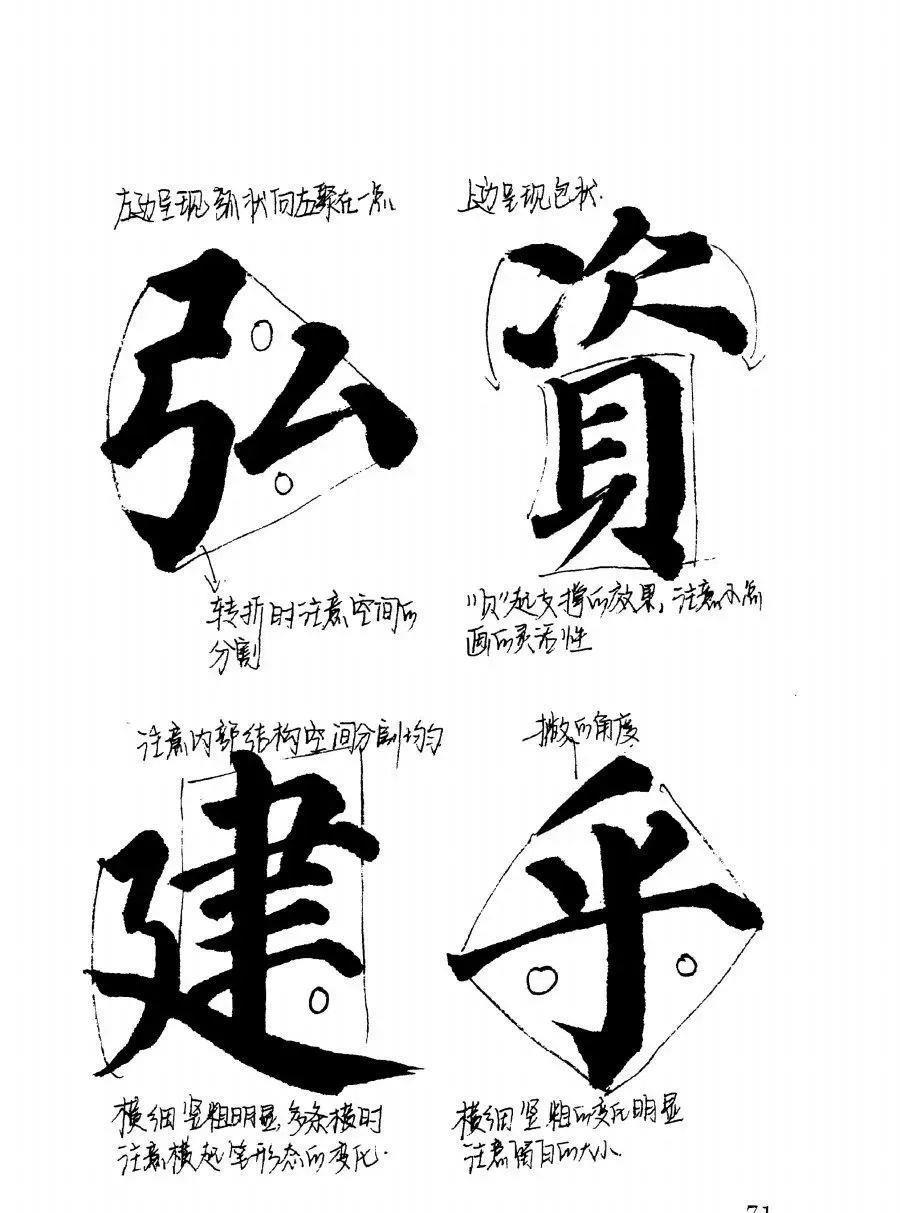 左边呈现弧状向左聚在一点
上边呈现包状.
弘
資
转折时注意空间的
分割
"贝"起支撑的效果,注意小点
画的灵活性
注意内部结构空间分割均匀
撇的角度
建
乎
横细竖粗明显,多条横时
注意横起笔形态的变化.
横细竖粗的变化明显
注意留白的大小
71